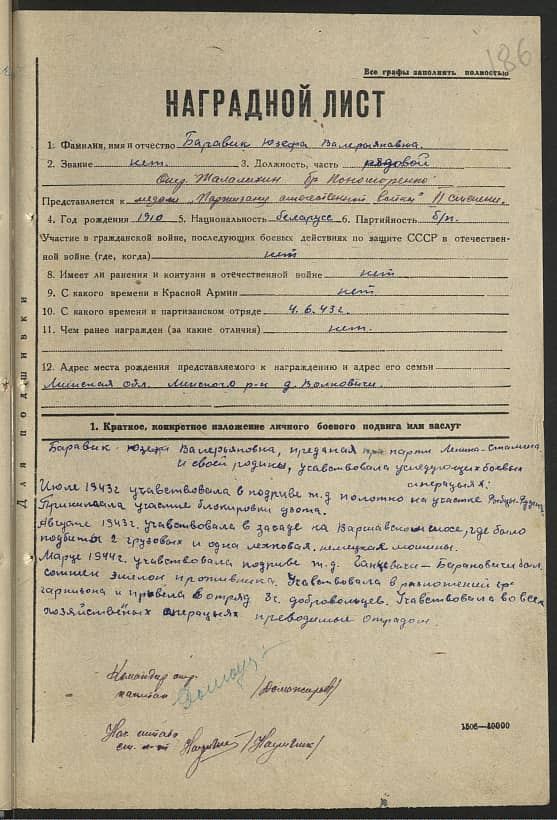 186
Все графы заполнять полностью
НАГРАДНОЙ ЛИСТ
1. Фамилия, имя и отчество Баравик Юзефа Валерьяновна
2. Звание нет. 3. Должность, часть рядовой
Отряд. Талалихин бр Пономоренко
Представляется к медали „Партизану отечественной войны" II степени.
4. Год рождения 1910 5. Национальность беларусс 6. Партийность б/п.
Участие в гражданской войне, последующих боевых действиях по защите СССР в отечествен-
ной войне (где, когда) нет
8. Имеет ли ранения и контузии в отечественной войне нет
9. С какого времени в Красной Армии нет
10. С какого времени в партизанском отряде 4.6.43 г.
11. Чем ранее награжден (за какие отличия) нет.
12. Адрес места рождения представляемого к награждению и адрес его семьи
Минская обл. Минского р-н д. Волковичи.
Для подшивки
1. Краткое, конкретное изложение личного боевого подвига или заслуг
Баравик Юзефа Валерьяновна, преданая парти Ленина-Сталина
и своей родины, учавствовала у следующих боевых
операциях:
Июле 1943г учавствовала в подриве ж.д. полотно на участке
Принимала участие блокировки
Августе 1943г. учавствовала в засаде на Варшавском шосе, где было
подбиты 2 грузовых и одна легковая немецкая машины.
Марце 1944г. учавствовала подриве ж.д. Барановичи был
эшелон противника. Учавствовала в разложений
гарнизона и привела в отряд 8 г. добровольцев. Учавствовала во всех
хозяйственных операциях преводимые отрадом.
Командир отр.
капитан /Доможиров/
Нач. штаба
ст. л-т /Наумчик/
1506—40000